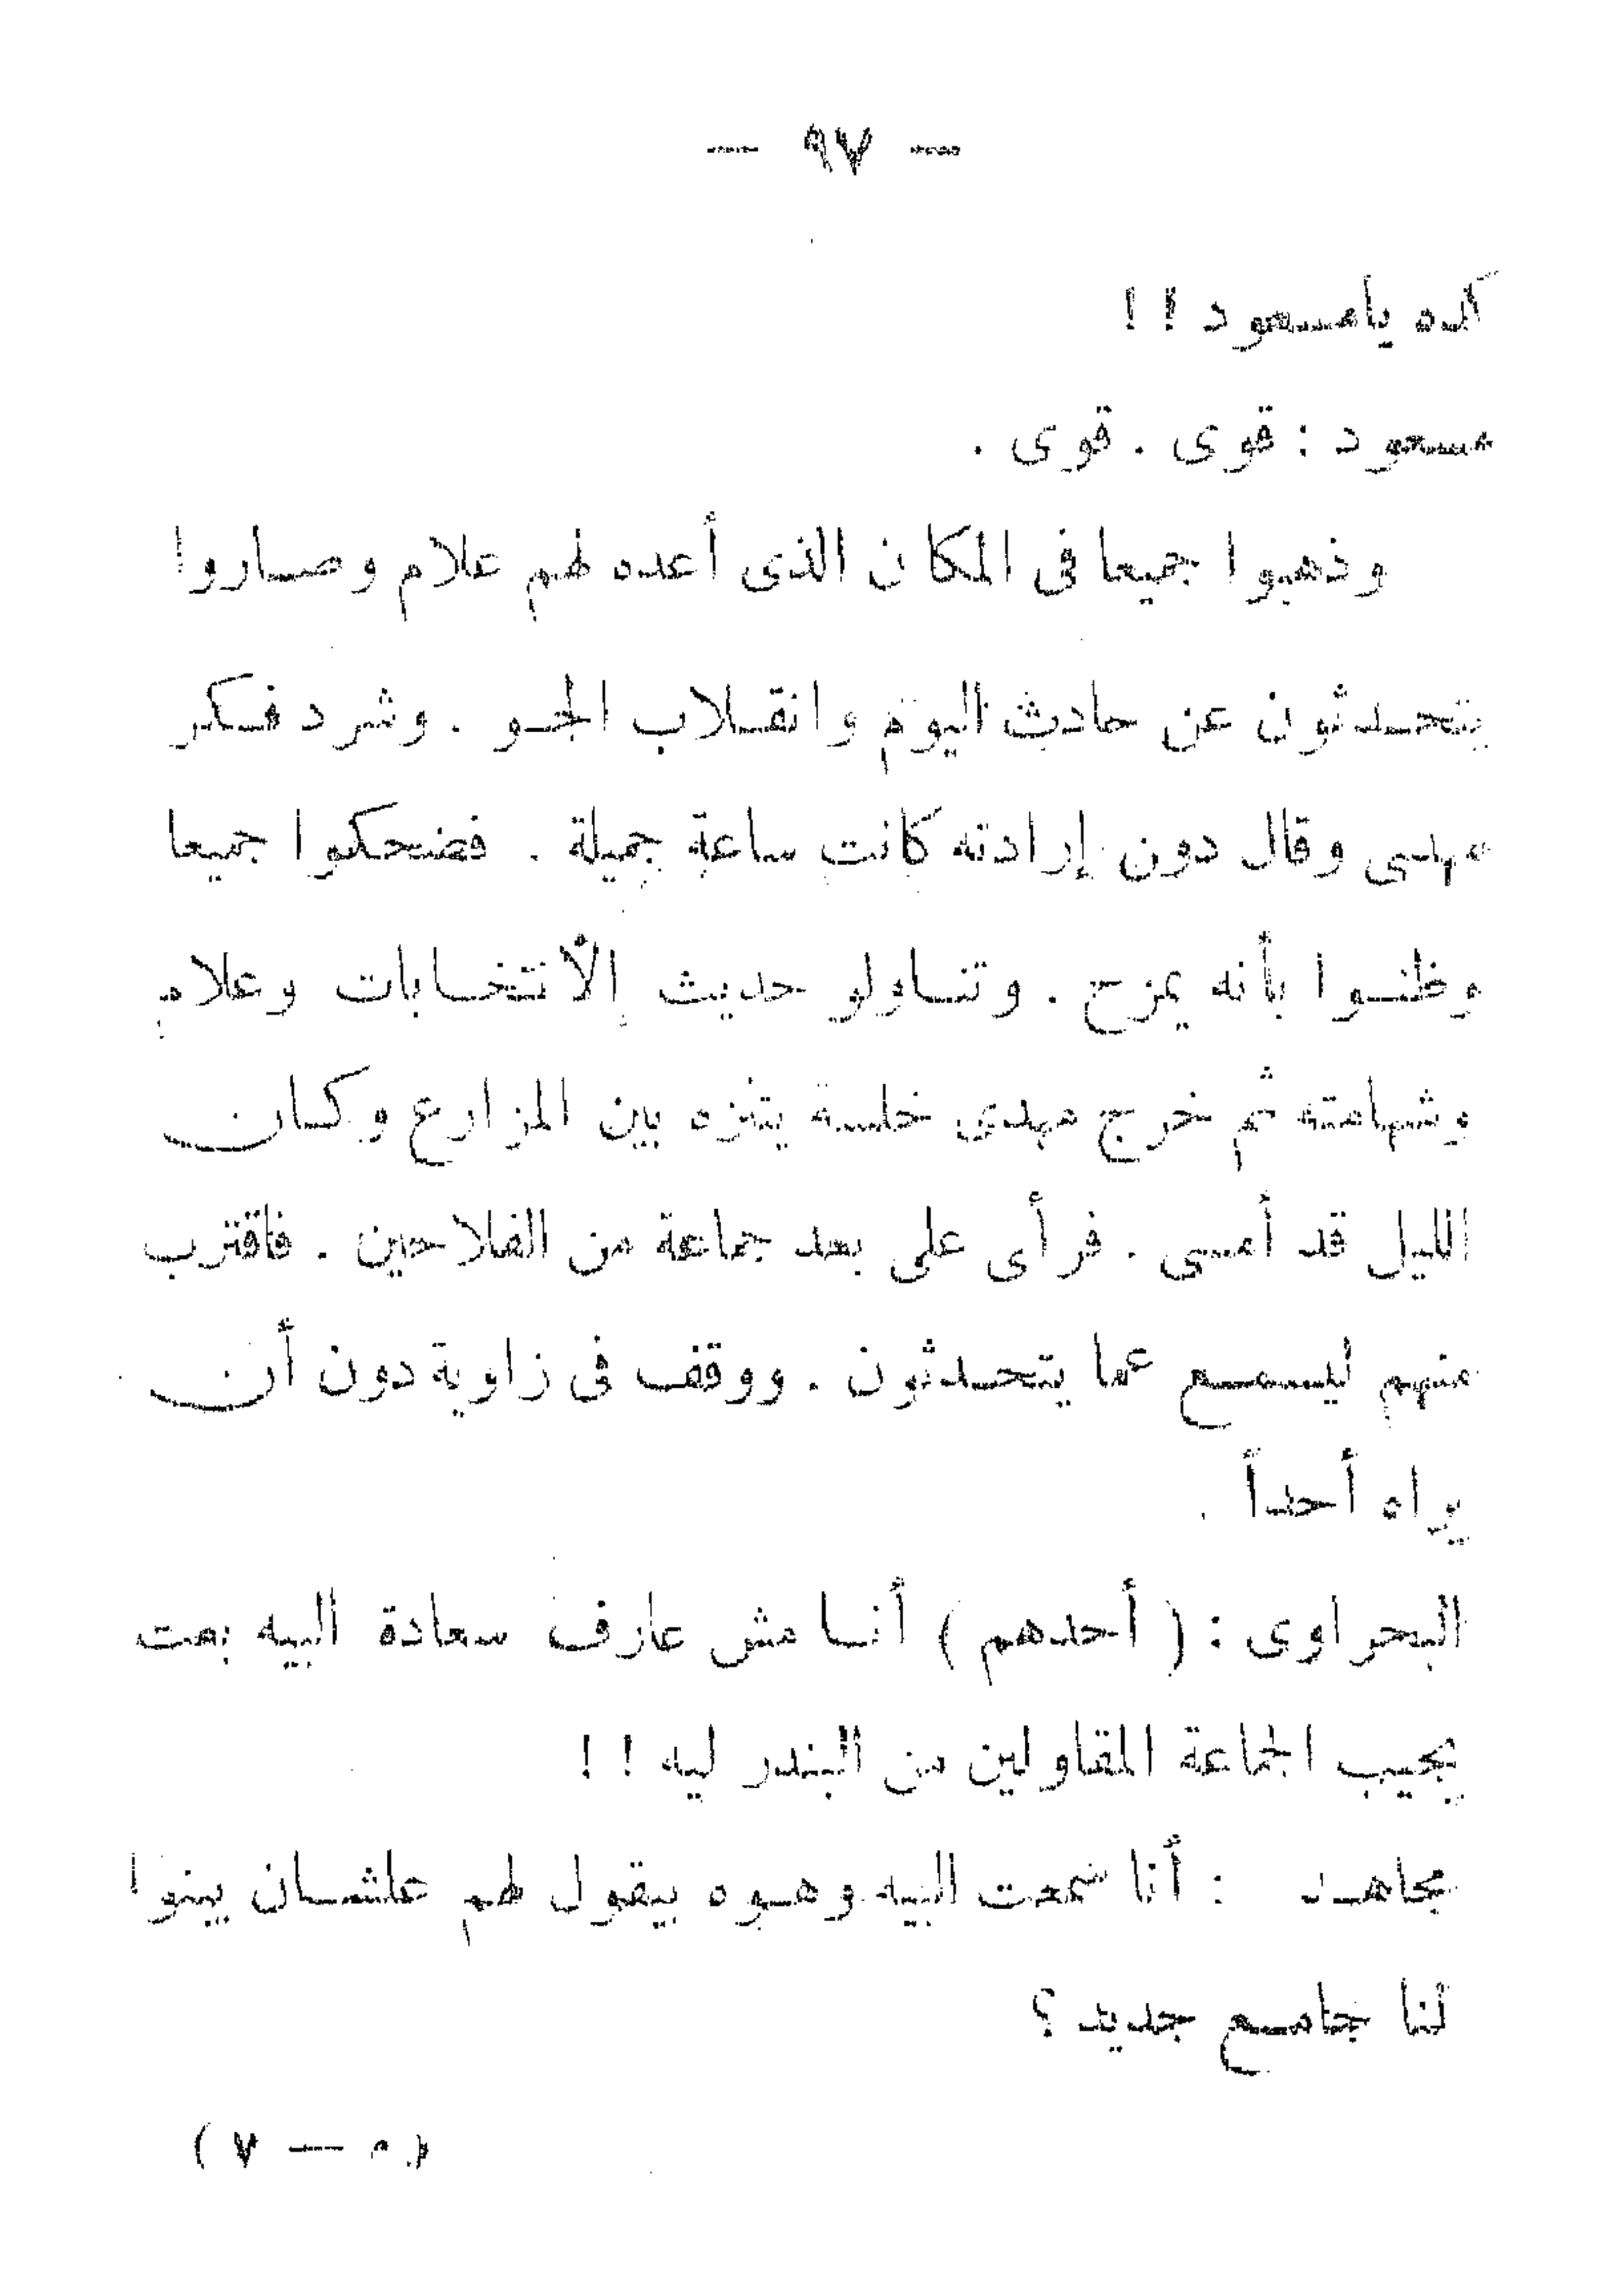 — ٩٧ —
كده يامسعود ! !
مسعود : قوى . قوى .
وذهبوا جميعا فى المكان الذى أعده لهم علام وصاروا
يتحدثون عن حادث اليوم وانقلاب الجو . وشرد فكر
مهدى وقال دون إرادته كانت ساعة جميلة . فضحكوا جميعا
وظنوا بأنه يمزح . وتناولو حديث الأنتخابات وعلام
وشهامته ثم خرج مهدى خلسة يتنزه بين المزارع وكان
الليل قد أمسى . فرأى على بعد جماعة من الفلاحين . فاقترب
منهم ليسمع عما يتحدثون . ووقف فى زاوية دون أن
يراه أحداً .
البحراوى : ( أحدهم ) أنا مش عارف سعادة البيه بعت
يجيب الجماعة المقاولين من البندر ليه ! !
مجاهد : أنا سمعت البيه وهوه بيقول لهم علشان يبنوا
لنا جامع جديد ؟
( ٧ — م )